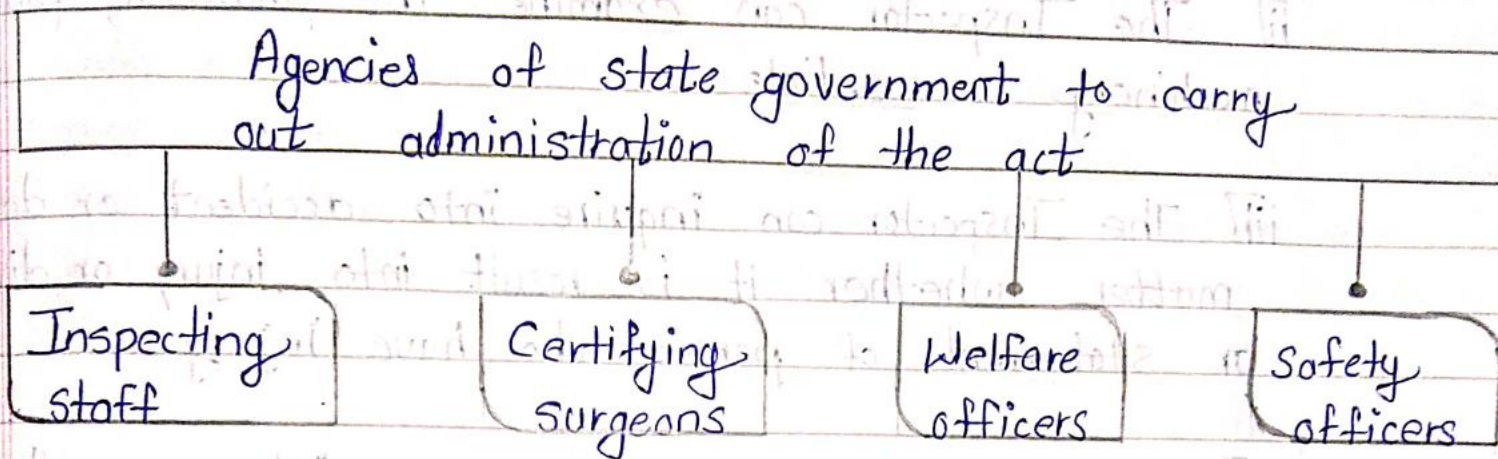 Agencies of state government to carry
out administration of the act
Inspecting
staff
Certifying
surgeons
Welfare
officers
Safety
officers